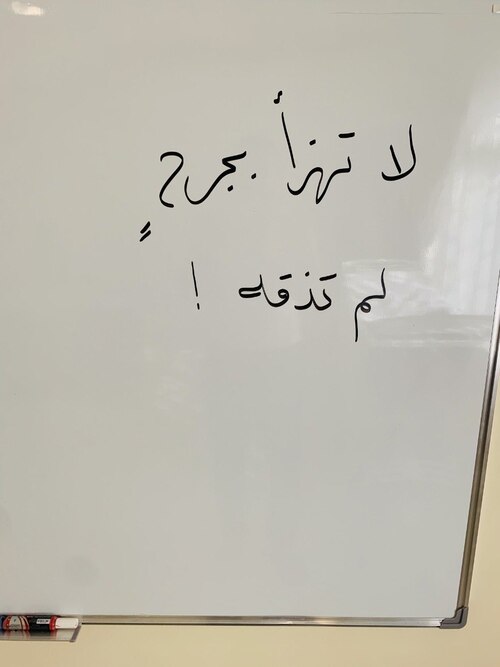 لا تهزأ بجرحٍ
لم تذقه !